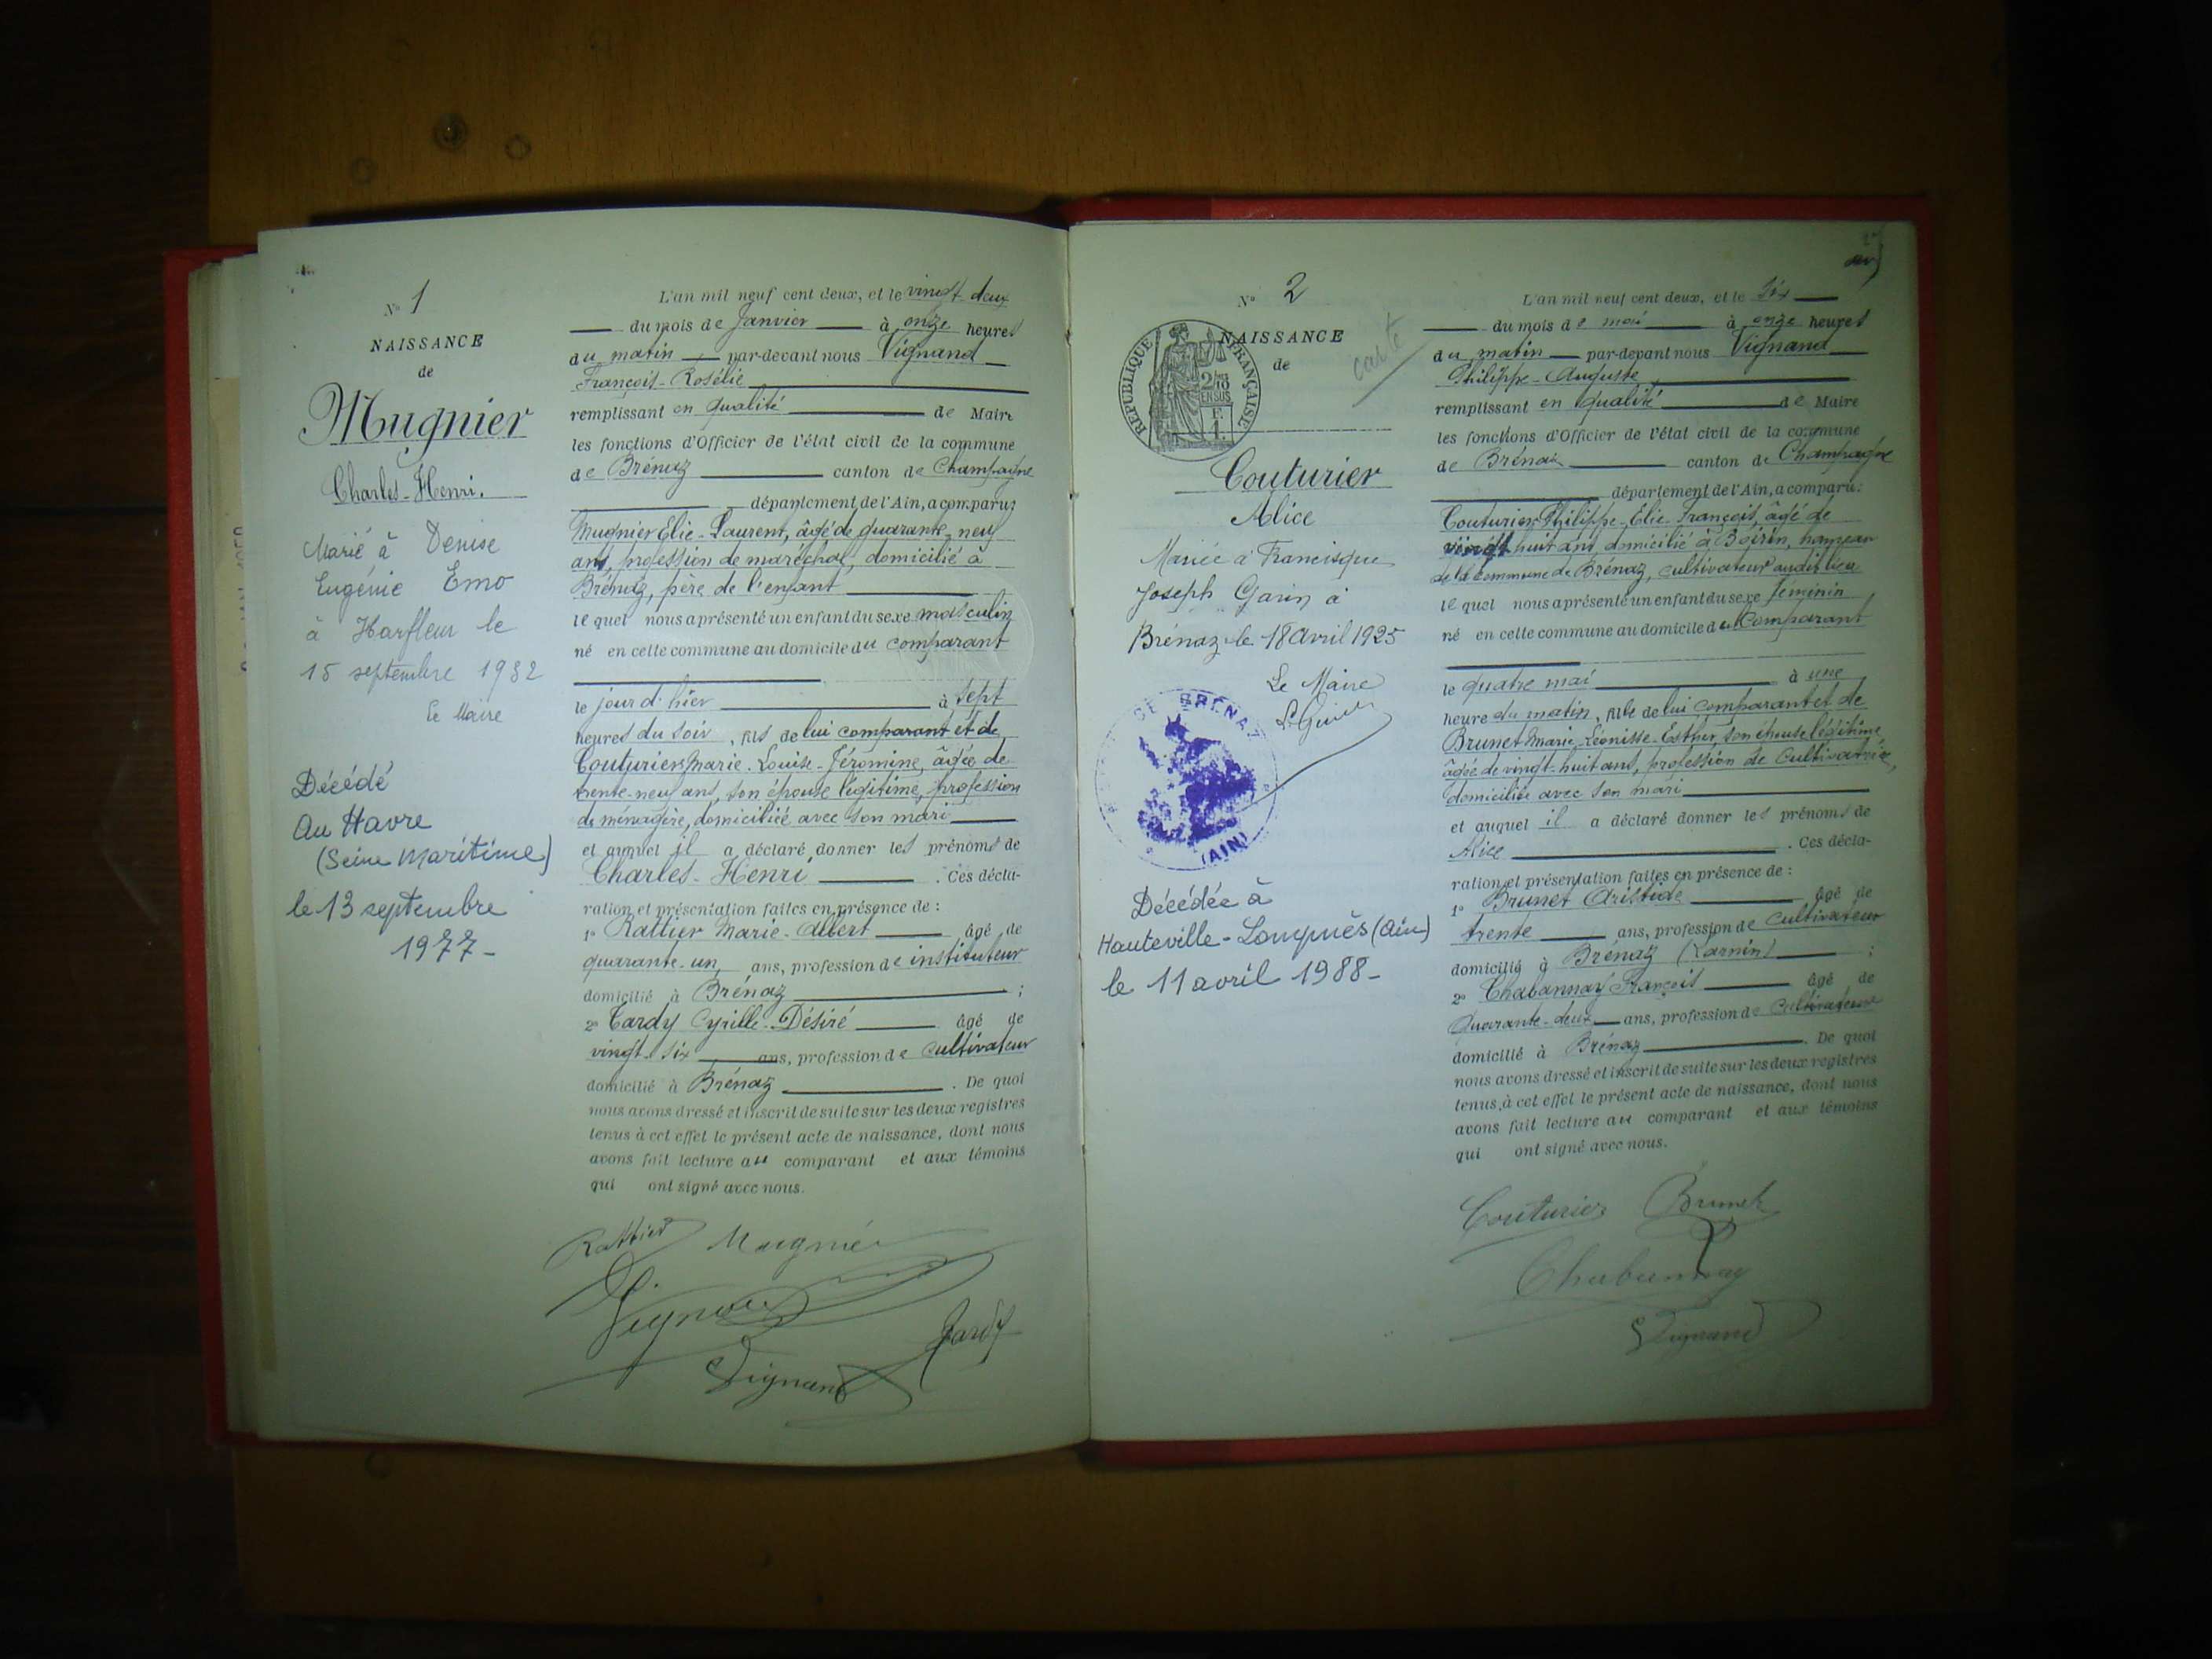 N° 1
NAISSANCE
de
Mugnier
Charles-Henri.
Marié à Denise
Eugénie Emo
à Harfleur le
15 septembre 1932
Le Maire
Décédé
Au Havre
(Seine Maritime)
le 13 septembre
1977-
L'an mil neuf cent deux, et le vingt deux
du mois de Janvier à onze heures
du matin par-devant nous Vignand
François-Rosélie
remplissant en qualité de Maire
les fonctions d'Officier de l'état civil de la commune
de Brénaz canton de Champagne
département de l'Ain, a comparu:
Mugnier Elie-Laurent, âgé de quarante-neuf
ans, profession de maréchal, domicilié à
Brénaz, père de l'enfant
lequel nous a présenté un enfant du sexe masculin
né en cette commune au domicile du comparant
le jour d'hier à sept
heures du soir, fils de lui comparant et de
Couturier Marie-Louise-Féromine, âgée de
trente-neuf ans, son épouse légitime, profession
de ménagère, domiciliée avec son mari
et auquel il a déclaré donner les prénoms de
Charles-Henri. Ces décla-
ration et présentation faites en présence de :
1° Rattier Marie-Albert âgé de
quarante-un ans, profession de instituteur
domicilié à Brénaz ;
2° Tardy Cyrille-Désiré âgé de
vingt-six ans, profession de cultivateur
domicilié à Brénaz. De quoi
nous avons dressé et inscrit de suite sur les deux registres
tenus à cet effet le présent acte de naissance, dont nous
avons fait lecture au comparant et aux témoins
qui ont signé avec nous.
Rattier Mugnier
Vignand
Tardy
Vignand
N° 2
NAISSANCE
de
carte
RÉPUBLIQUE FRANÇAISE
2/10
EN SUS
F.
1.
Couturier
Alice
Mariée à Francisque
Joseph Garin à
Brénaz le 18 avril 1925
Le Maire
DE BRÉNAZ
(AIN)
Décédée à
Hauteville-Lompnès (Ain)
le 11 avril 1988-
L'an mil neuf cent deux, et le six
du mois de mai à onze heures
du matin par-devant nous Vignand
Philippe-Auguste
remplissant en qualité de Maire
les fonctions d'Officier de l'état civil de la commune
de Brénaz canton de Champagne
département de l'Ain, a comparu:
Couturier Philippe-Elie-François, âgé de
vingt huit ans, domicilié à Boirin, hameau
de la commune de Brénaz, cultivateur audit lieu
lequel nous a présenté un enfant du sexe féminin
né en cette commune au domicile du Comparant
le quatre mai à une
heure du matin, fille de lui comparant et de
Brunet Marie-Léonisse-Esther, son épouse légitime,
âgée de vingt-huit ans, profession de Cultivatrice,
domiciliée avec son mari
et auquel il a déclaré donner les prénoms de
Alice. Ces décla-
ration et présentation faites en présence de :
1° Brunet Aristide âgé de
trente ans, profession de Cultivateur
domicilié à Brénaz (Larnin) ;
2° Chabannay François âgé de
Quarante-deux ans, profession de Cultivateur
domicilié à Brénaz. De quoi
nous avons dressé et inscrit de suite sur les deux registres
tenus à cet effet le présent acte de naissance, dont nous
avons fait lecture au comparant et aux témoins
qui ont signé avec nous.
Couturier Brunet
Chabannay
Vignand